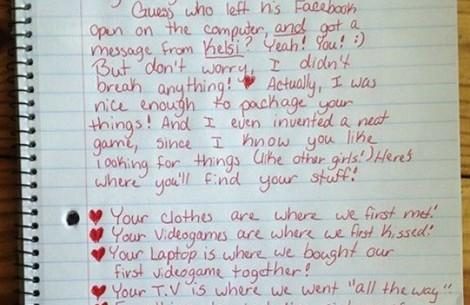 Guess who left his Facebook
open on the computer, and got a
message from Kelsi? Yeah! You! :)
But don't worry, I didn't
break anything! ♥ Actually, I was
nice enough to package your
things! And I even invented a neat
game, since I know you like
looking for things (like other girls!) Here's
where you'll find your stuff!
♥ Your clothes are where we first met!
♥ Your Videogames are where we first kissed!
♥ Your Laptop is where we bought our
first videogame together!
♥ Your T.V is where we went "all the way"